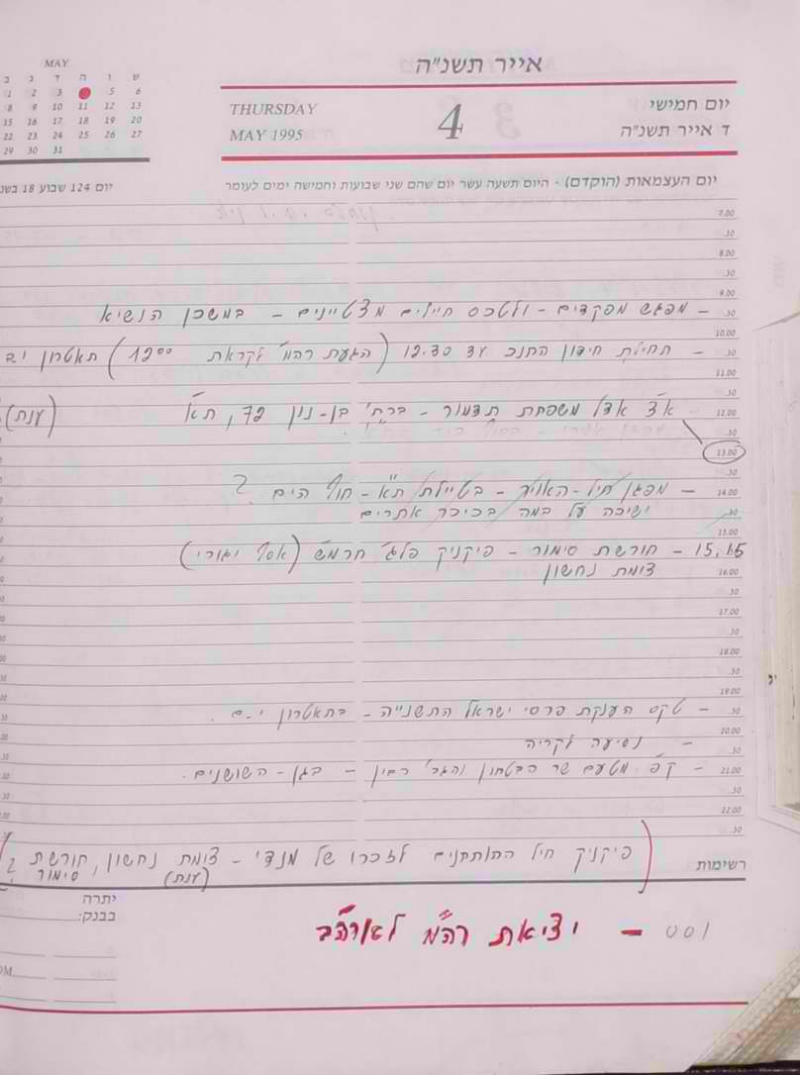 אייר תשנ"ה
MAY
ב ג ד ה ו ש
1 2 3 5 6
8 9 10 11 12 13
15 16 17 18 19 20
22 23 24 25 26 27
29 30 31
THURSDAY
MAY 1995
4
יום חמישי
ד אייר תשנ"ה
יום העצמאות (הוקדם) - היום תשעה עשר יום שהם שני שבועות וחמישה ימים לעומר
יום 124 שבוע 18
7.00
.30
8.00
.30
9.00
.30 - מפגש מפקדים - ולטכס חיילים מצטיינים - במשכן הנשיא
10.00
.30 - תחילת חידון התנכ עד 12.30 (הגעת רהמ" לקראת 12⁰⁰) תאטרון
11.00
.30
12.00 אצל משפחת תדמור - ברח' בן-נון 72, ת"א (ענת)
.30
13.00
.30
14.00 - מפגן חיל-האויר - בטיילת ת"א - חוף הים ?
.30 ישיבה על במה בכיכר אתרים
15.00
15.15 - חורשת סימור - פיקניק פלג חרמש (אסף יגורי)
16.00 צומת נחשון
.30
17.00
.30
18.00
.30
19.00
.30 - טקס הענקת פרסי ישראל התשנ"ה - בתאטרון י-ם.
20.00
.30 - נסיעה לקריה
21.00 - ק"פ מטעם שר הבטחון והגב' רבין - בגן-השושנים.
.30
22.00
.30
רשימות
(פיקניק חיל התותחנים לזכרו של מנדי - צומת נחשון, חורשת סימור ?
(ענת)
יתרה
בבנק:
001 - יציאת רה"מ לארה"ב